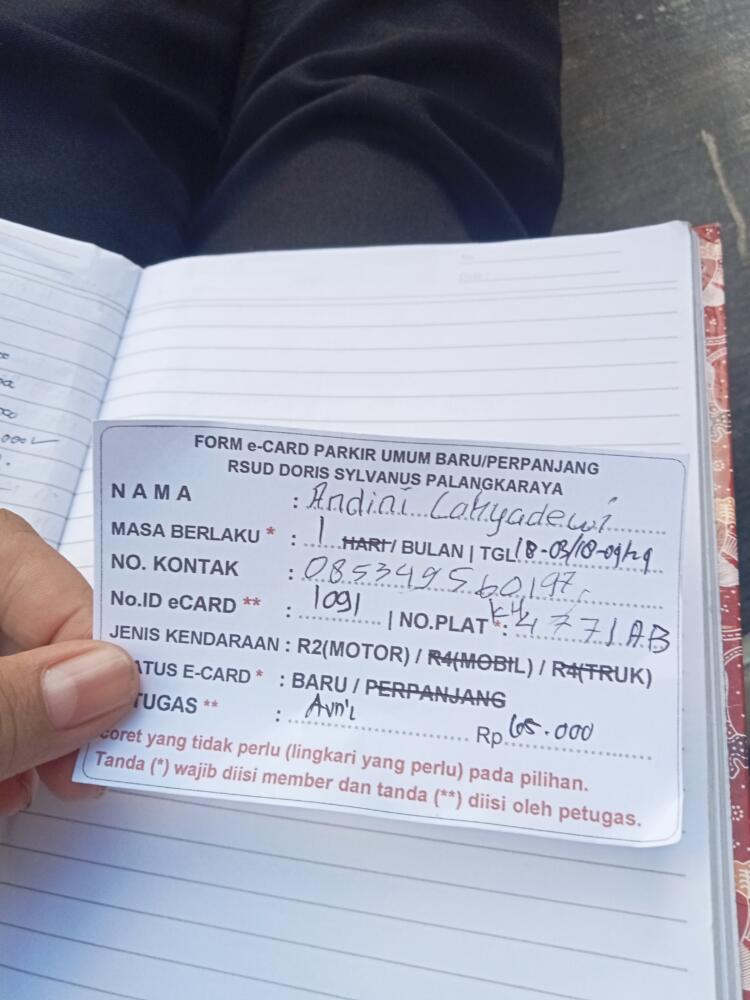 FORM e-CARD PARKIR UMUM BARU/PERPANJANG
RSUD DORIS SYLVANUS PALANGKARAYA
NAMA : Andini Cahyadewi
MASA BERLAKU * : 1 HARI / BULAN | TGL
NO. KONTAK : 085349560197
No.ID eCARD ** : 1091 | NO.PLAT *: KH 4771 AB
JENIS KENDARAAN : R2(MOTOR) / R4(MOBIL) / R4(TRUK)
ATUS E-CARD * : BARU / PERPANJANG
TUGAS ** : Rp 65.000
coret yang tidak perlu (lingkari yang perlu) pada pilihan.
Tanda (*) wajib diisi member dan tanda (**) diisi oleh petugas.